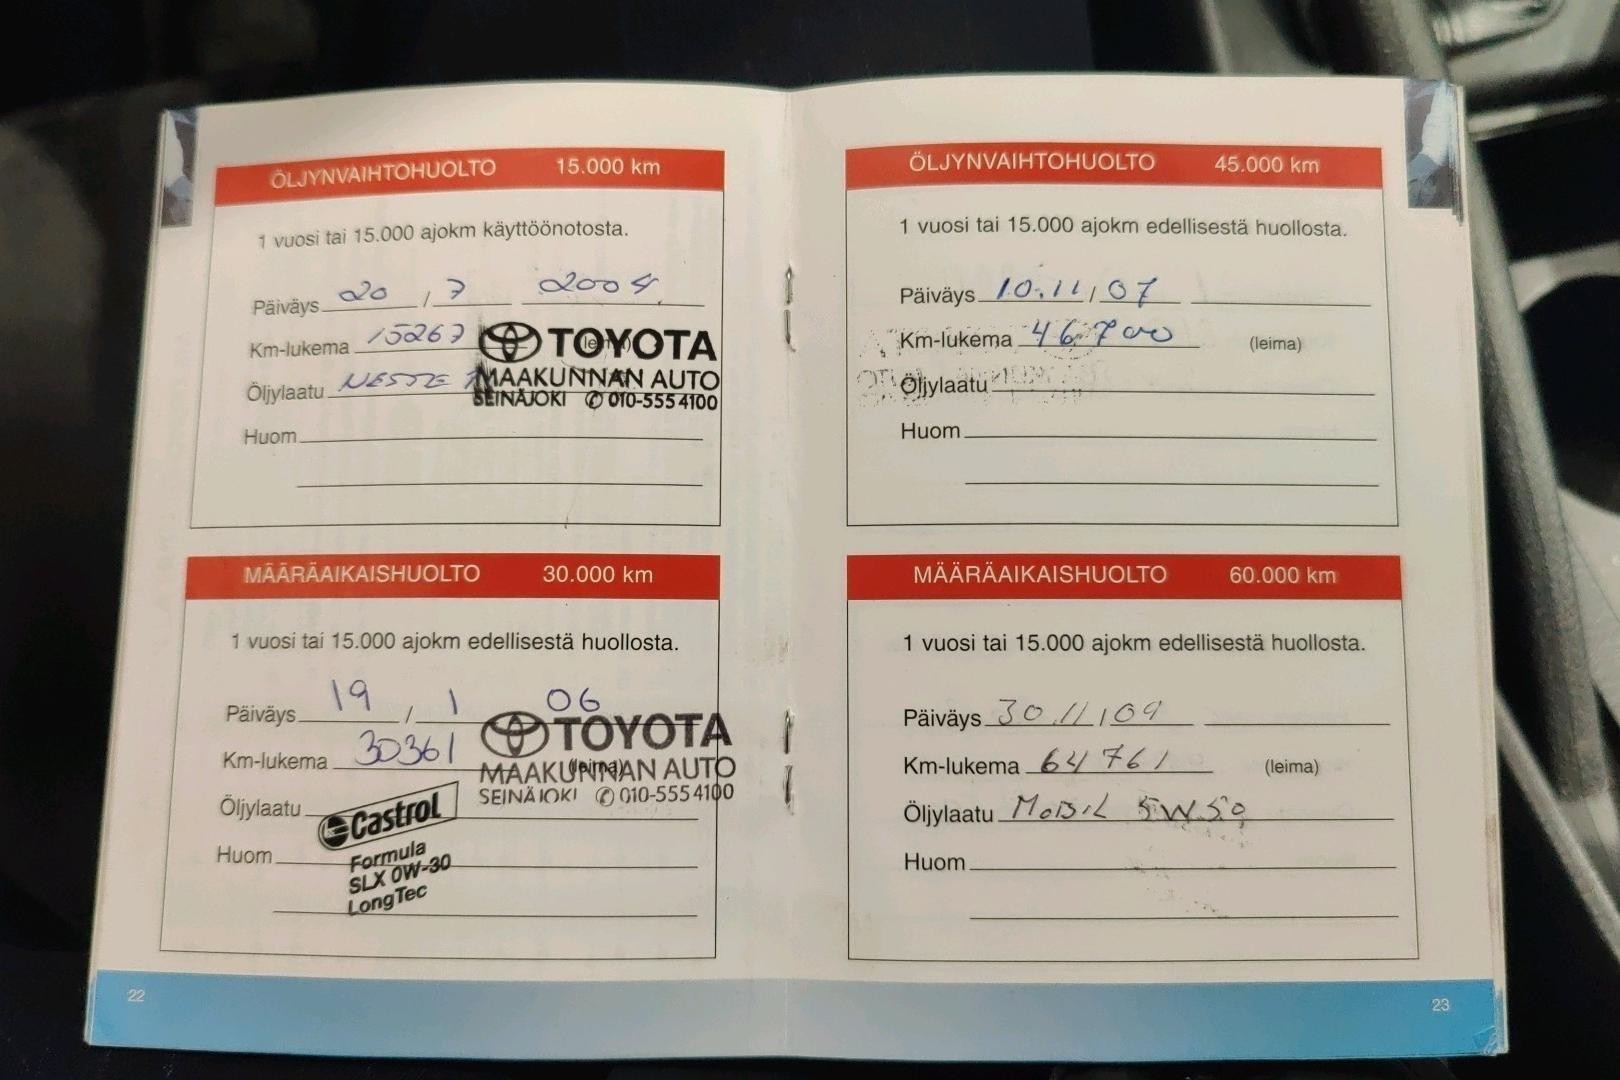 ÖLJYNVAIHTOHUOLTO 15.000 km
1 vuosi tai 15.000 ajokm käyttöönotosta.
Päiväys 20 / 7 2004
Km-lukema 15267 (leima)
Öljylaatu NESTE
Huom
TOYOTA
MAAKUNNAN AUTO
SEINÄJOKI ✆ 010-555 4100
MÄÄRÄAIKAISHUOLTO 30.000 km
1 vuosi tai 15.000 ajokm edellisestä huollosta.
Päiväys 19 / 1 06
Km-lukema 30361 (leima)
Öljylaatu
Huom
TOYOTA
MAAKUNNAN AUTO
SEINÄJOKI ✆ 010-555 4100
Castrol
Formula
SLX 0W-30
LongTec
22
ÖLJYNVAIHTOHUOLTO 45.000 km
1 vuosi tai 15.000 ajokm edellisestä huollosta.
Päiväys 10.11 / 07
Km-lukema 46700 (leima)
Öljylaatu
Huom
MÄÄRÄAIKAISHUOLTO 60.000 km
1 vuosi tai 15.000 ajokm edellisestä huollosta.
Päiväys 30.11 / 09
Km-lukema 64761 (leima)
Öljylaatu MOBIL 5W50
Huom
23